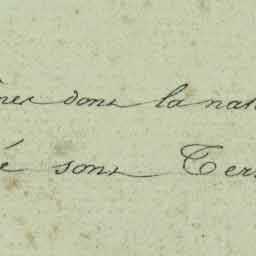 nes dont la nat
é sont Ter